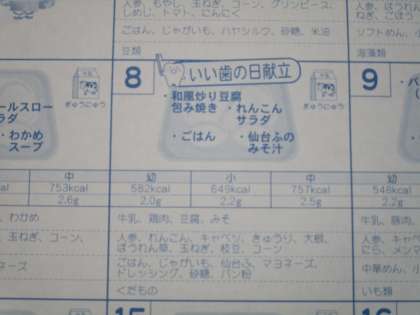 人参、もやし、玉ねぎ、コーン、グリンピース、
しめじ、トマト、にんにく
ごはん、じゃがいも、ハヤシルウ、砂糖、米油
豆類
ソフトめん、
海藻類
8
いい歯の日献立
9
・和風炒り豆腐
包み焼き
・れんこん
サラダ
・ごはん
・仙台ふの
みそ汁
ぎゅうにゅう
ぎゅうにゅう
ールスロー
ラダ
・わかめ
スープ
中
幼
小
中
幼
753kcal
582kcal
649kcal
757kcal
2.6g
2.0g
2.2g
2.5g
2.2g
、わかめ
牛乳、鶏肉、豆腐、みそ
牛乳、豚肉、
、玉ねぎ、コーン、
人参、れんこん、キャベツ、きゅうり、大根、
ほうれん草、玉ねぎ、枝豆、コーン
人参、キャベ
にら、メンマ
ネーズ
ごはん、じゃがいも、仙台ふ、マヨネーズ、
ドレッシング、砂糖、パン粉
中華めん、
くだもの
いも類
15
16